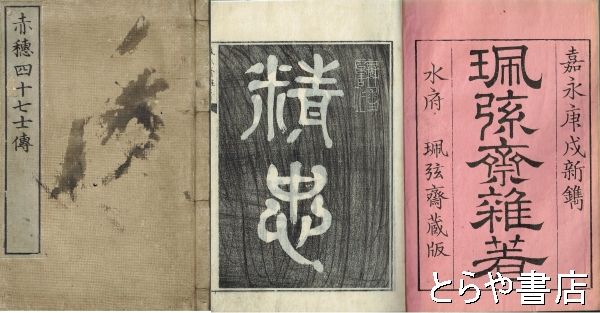 赤穗四十七士傳
精忠
嘉永庚戌新鐫
珮弦齋雜著
水府 珮弦齋蔵版
とらや書店